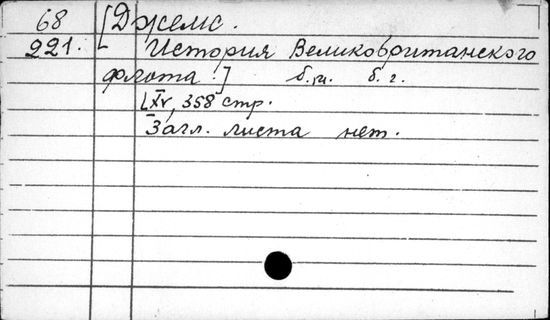 68 [Джемс.
221. История Великобританского
флота.] б.м. б.г.
[XV, 358 стр.
Загл. листа нет.